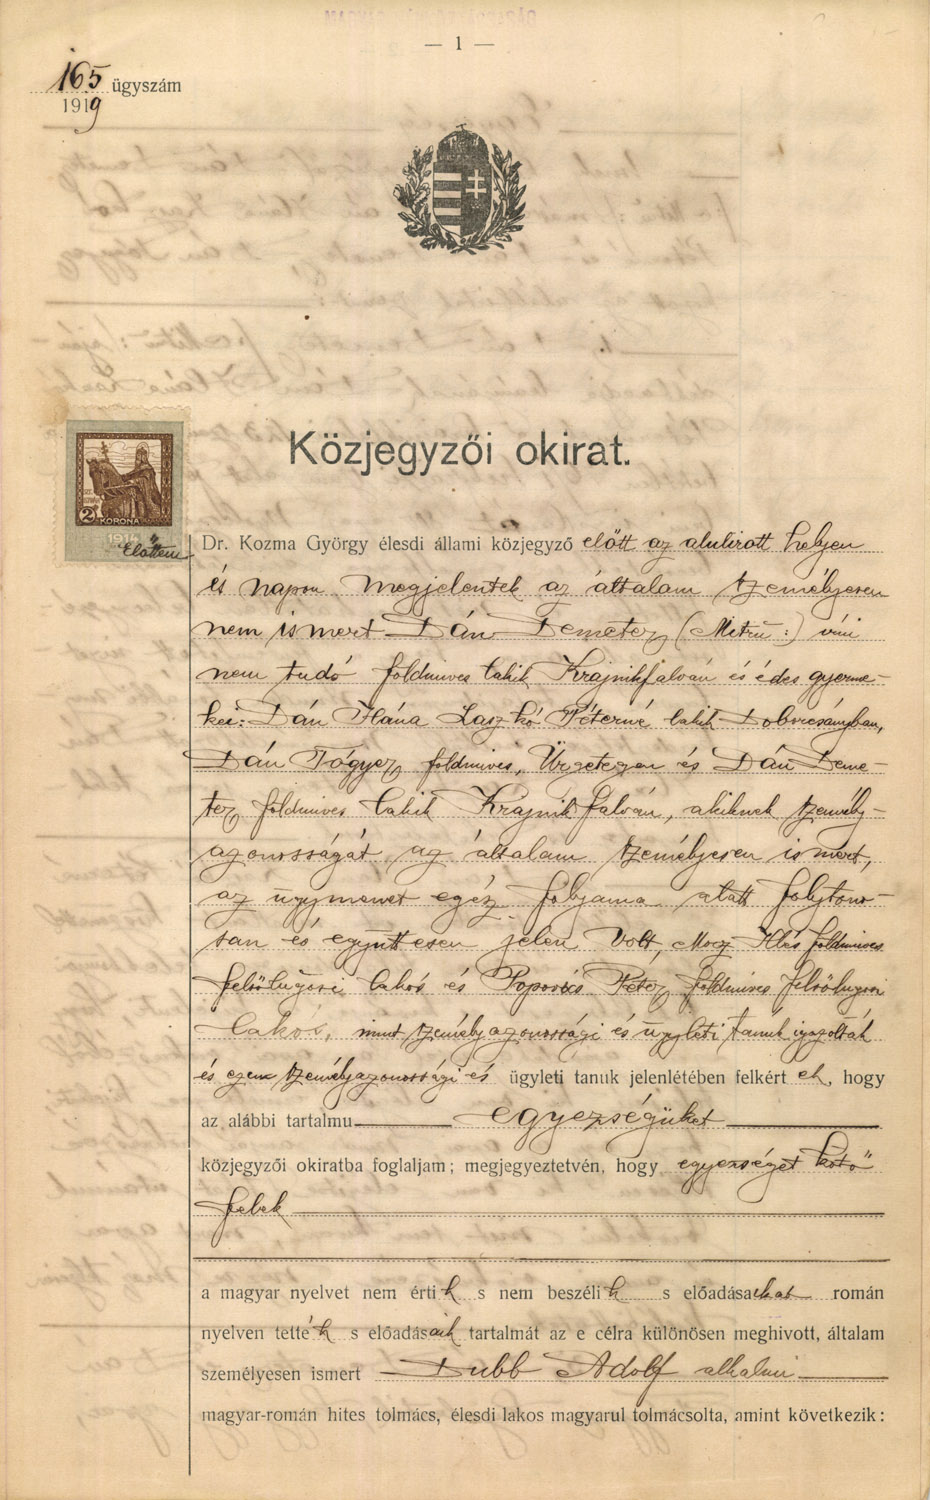 — 1 —
165 ügyszám
1919
Közjegyzői okirat.
2 KORONA
Előttem
Dr. Kozma György élesdi állami közjegyző előtt az alulirott helyen
és napon megjelentek az általam személyesen
nem ismert Dán Demeter (Mitru:) irni
nem tudó földmives lakik Krajnikfalván és édes gyerme-
kei: Dán Flóna Laszkó Péterné lakik Dobricsányban,
Dán Tógyer földmives, Ürgetegen és Dán Deme-
ter földmives lakik Krajnikfalván, akiknek személy-
azonosságát az általam személyesen ismert,
az ügymenet egész folyama alatt folytono-
san és együttesen jelen volt, Mocz Illés földmives
felsőlugosi lakos és Popovics Péter földmives felsőlugosi
lakós, mint személyazonossági és ügyleti tanuk igazolták
és ezen személyazonossági és ügyleti tanuk jelenlétében felkért ek, hogy
az alábbi tartalmu egyezségüket
közjegyzői okiratba foglaljam; megjegyeztetvén, hogy egyezséget kötő
felek
a magyar nyelvet nem érti k s nem beszéli k s előadásaikat román
nyelven tetté k s előadásaik tartalmát az e célra különösen meghivott, általam
személyesen ismert Dubb Adolf alkalmi
magyar-román hites tolmács, élesdi lakos magyarul tolmácsolta, amint következik: